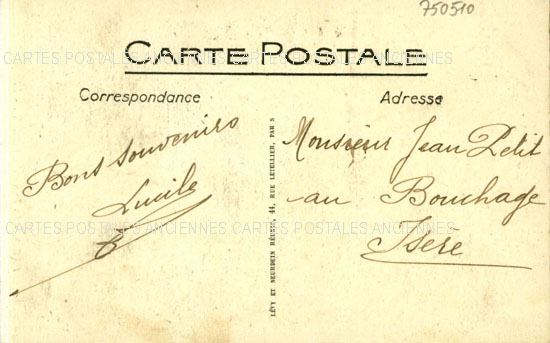 750510
CARTES POSTALES ANCIENNES CARTES POSTALES ANCIENNES
CARTE POSTALE
Correspondance
Adresse
Bons souvenirs
Lucile
Monsieur Jean Petit
au Bouchage
Isère
CARTES POSTALES ANCIENNES CARTES POSTALES ANCIENNES
LÉVY ET NEURDEIN RÉUNIS, 44, RUE LETELLIER, PARIS